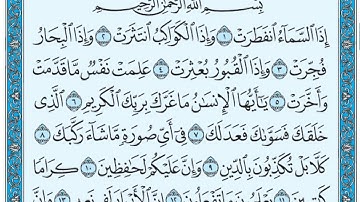 بِسْمِ ٱللَّهِ ٱلرَّحْمَٰنِ ٱلرَّحِيمِ
إِذَا ٱلسَّمَآءُ ٱنفَطَرَتْ ١ وَإِذَا ٱلْكَوَاكِبُ ٱنتَثَرَتْ ٢ وَإِذَا ٱلْبِحَارُ
فُجِّرَتْ ٣ وَإِذَا ٱلْقُبُورُ بُعْثِرَتْ ٤ عَلِمَتْ نَفْسٌ مَّا قَدَّمَتْ
وَأَخَّرَتْ ٥ يَٰٓأَيُّهَا ٱلْإِنسَٰنُ مَا غَرَّكَ بِرَبِّكَ ٱلْكَرِيمِ ٦ ٱلَّذِى
خَلَقَكَ فَسَوَّىٰكَ فَعَدَلَكَ ٧ فِىٓ أَىِّ صُورَةٍ مَّا شَآءَ رَكَّبَكَ ٨
كَلَّا بَلْ تُكَذِّبُونَ بِٱلدِّينِ ٩ وَإِنَّ عَلَيْكُمْ لَحَٰفِظِينَ ١٠ كِرَامًا
كَٰتِبِينَ ١١ يَعْلَمُونَ مَا تَفْعَلُونَ ١٢ إِنَّ ٱلْأَبْرَارَ لَفِى نَعِيمٍ ١٣ وَإِنَّ